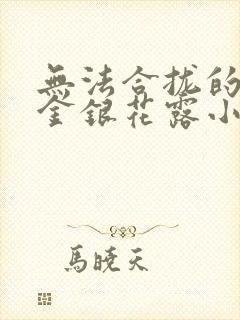 無法合拢的
金銀花露小
馬曉天